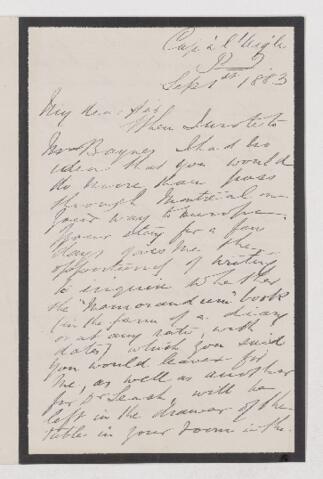 Cap à l'Aigle
P. Q.
Sept 1st 1883
My dear Sir,
When I wrote to
Mrs Baynes I had no
idea that you would
do more than pass
through Montreal on
your way to Europe.
Your stay for a few
days gives me the
opportunity of writing
to enquire whether
the "Memorandum" book
(in the form of a diary
or at any rate, with
dates) which you said
you would leave for
me, as well as another
for Dr will be
left in the drawer of the
table in your room in the